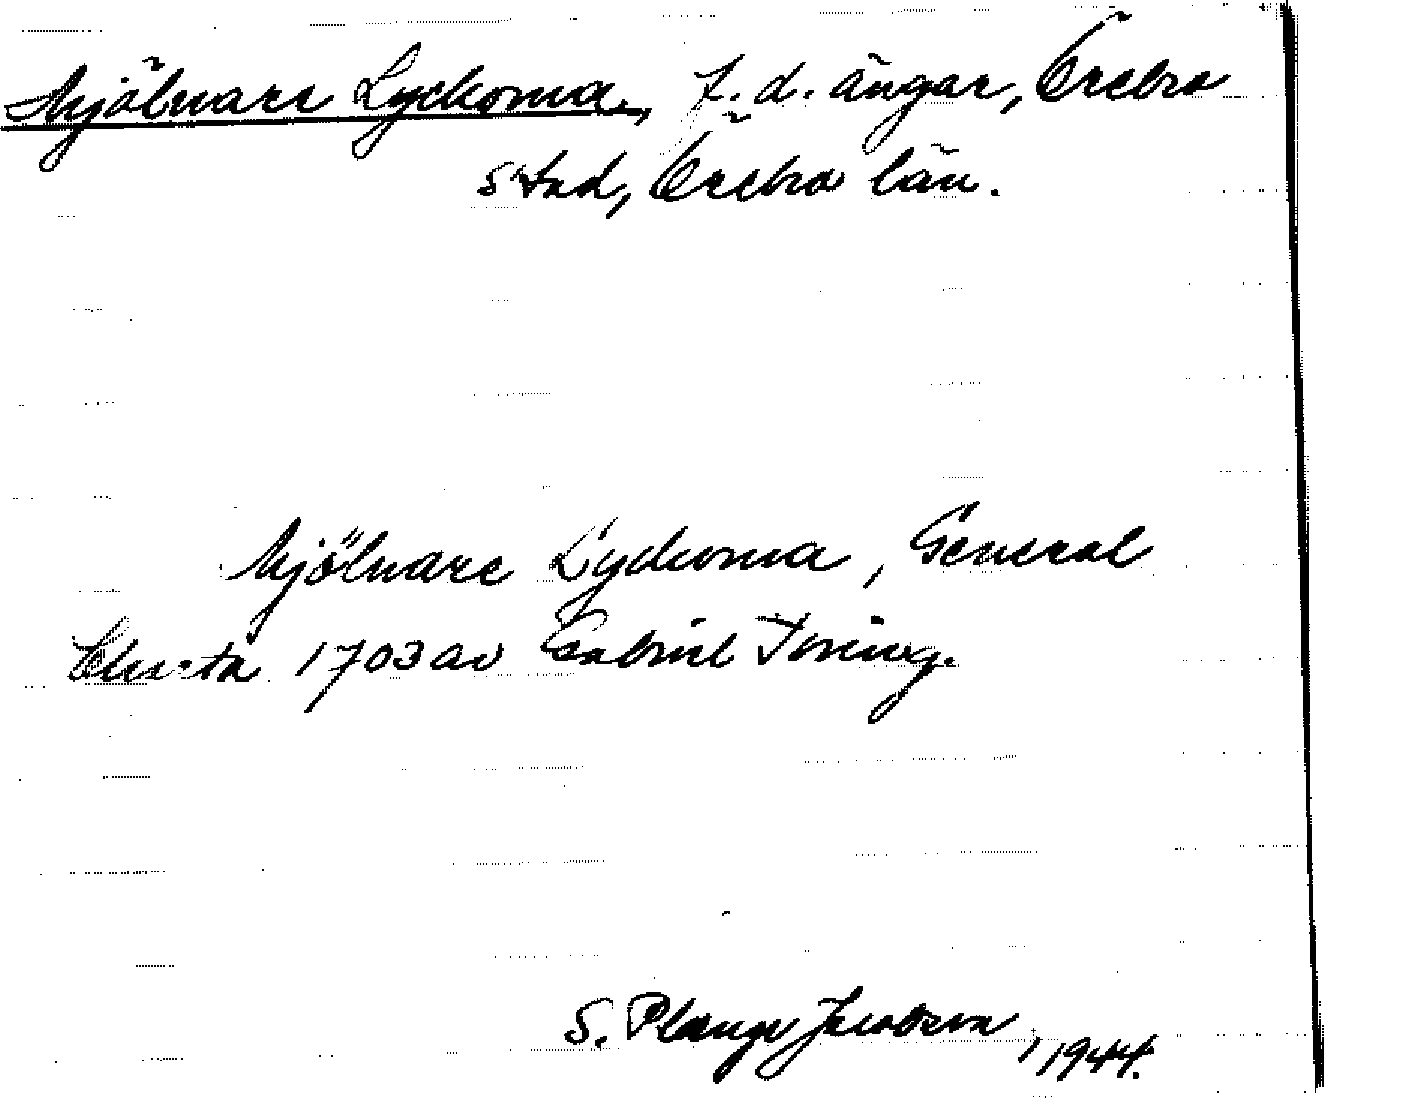 Mjölnare Lyckorna, f.d. ängar, Örebro
stad, Örebro län.
Mjölnare Lyckorna, General
Charta 1703 av Gabriel Toring.
S. Plange Jacobson, 1944.